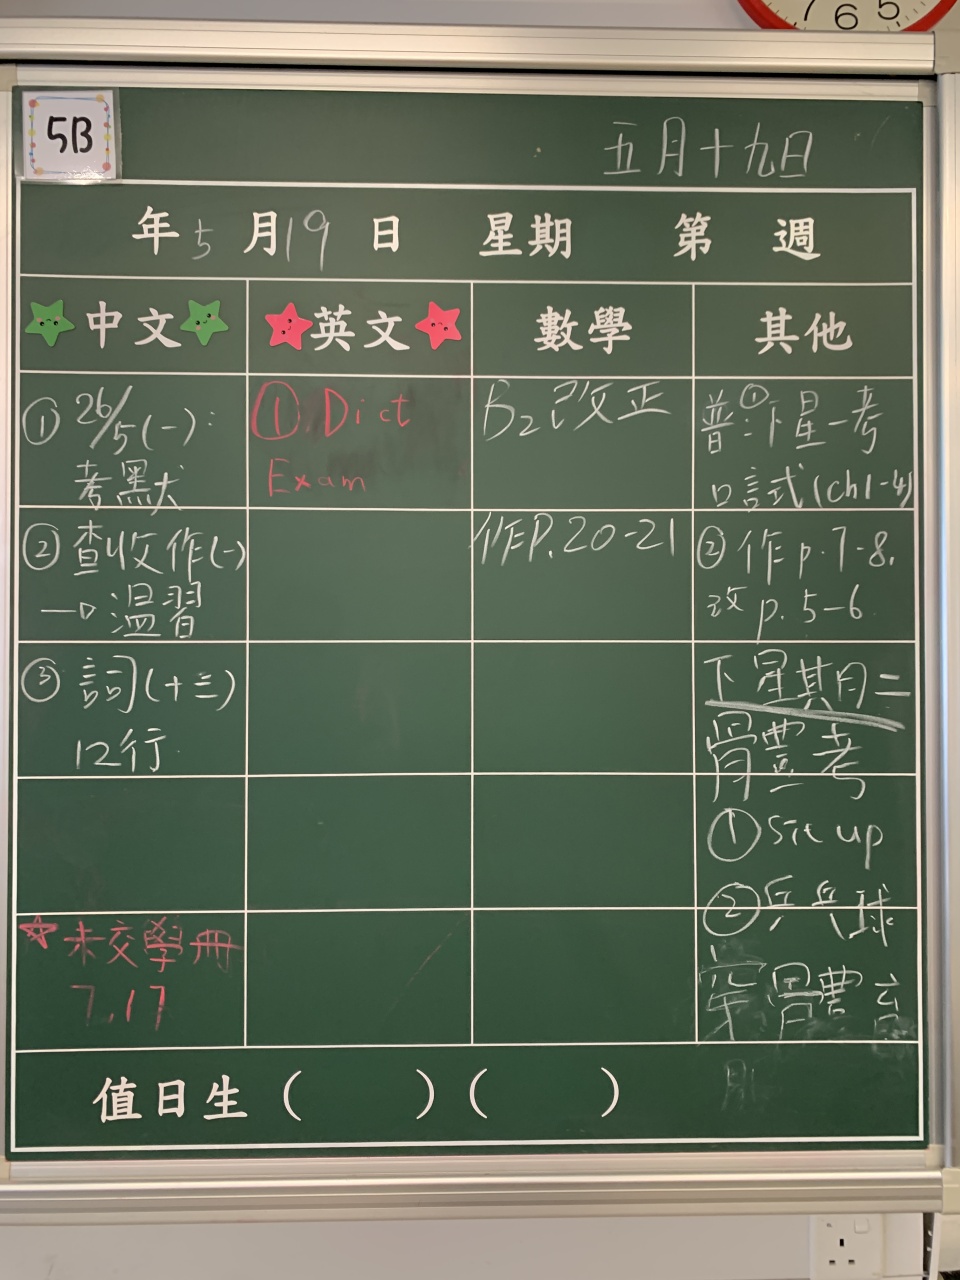 7 6 5
5B
五月十九日
年 5 月 19 日 星期 第 週
中文 英文 數學 其他
① 26/5(一):
考默
② 查收作(一)
→ 溫習
③ 詞(十三)
12行
未交學冊
7, 17
① Dict
Exam
B2改正
作P.20-21
普:①下星一考
口試(ch1-4)
② 作 p.7-8.
改 p.5-6
下星期二
體考
① Sit up
② 乒乓球
值日生 ( ) ( )